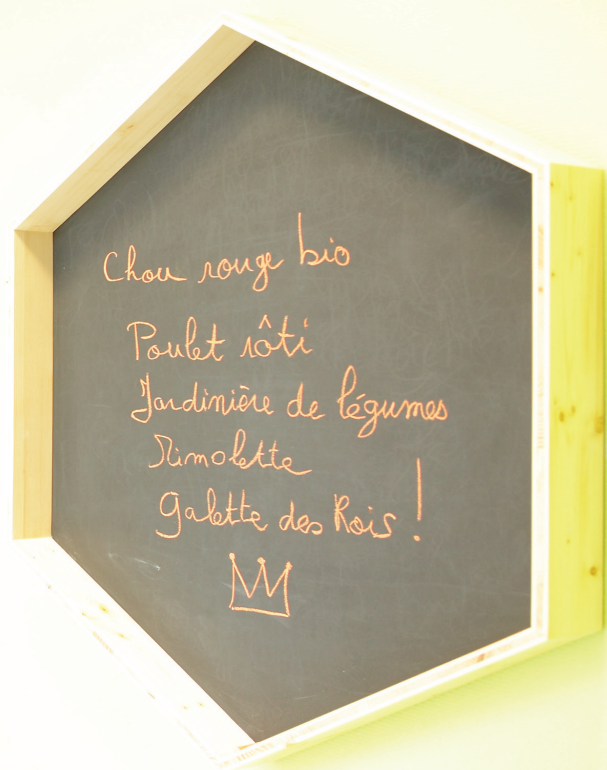 Chou rouge bio
Poulet rôti
Jardinière de légumes
Mimolette
Galette des Rois !